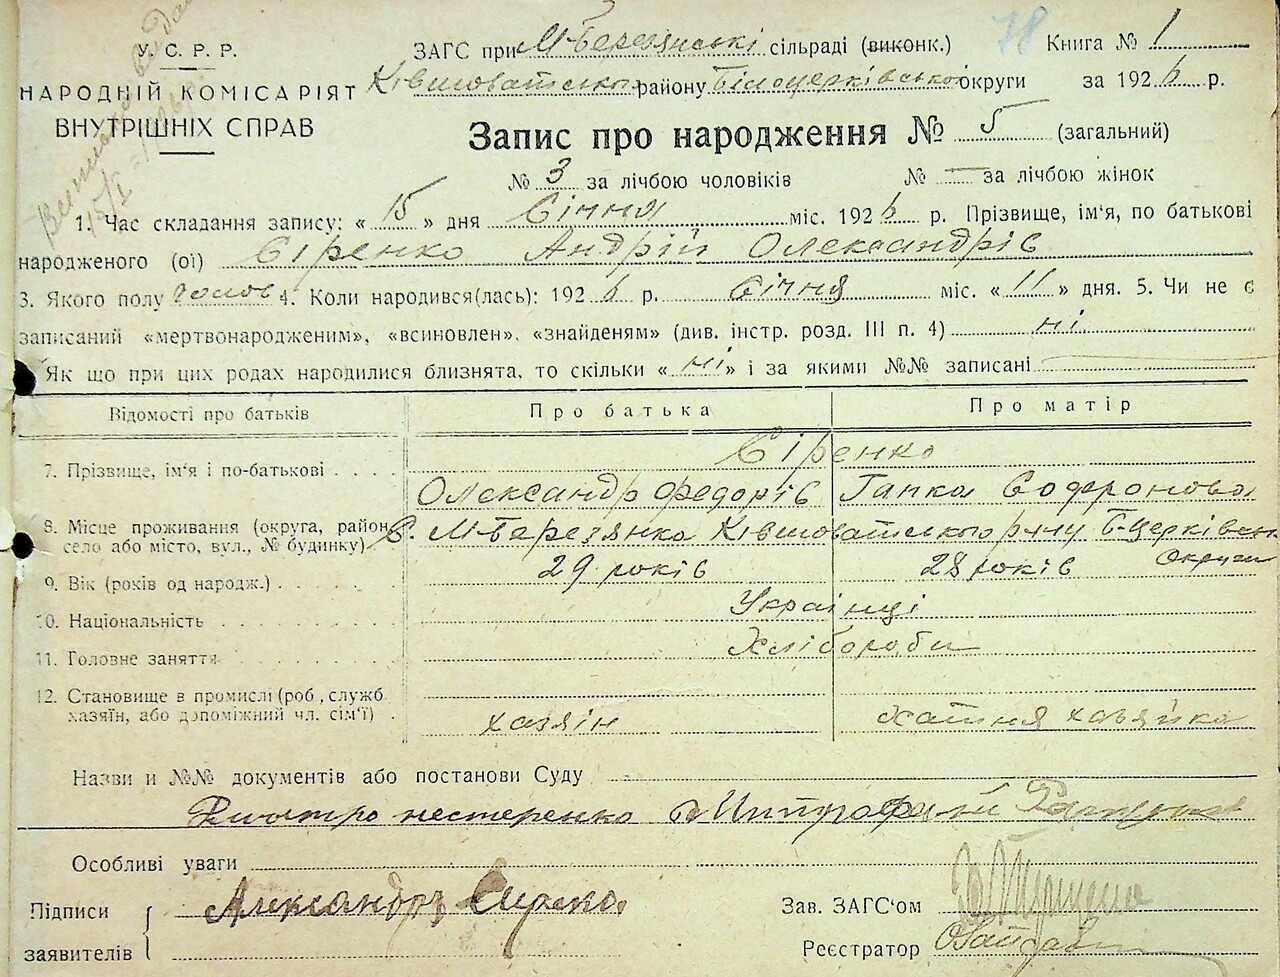 У.С.Р.Р.
НАРОДНІЙ КОМІСАРІЯТ
ВНУТРІШНІХ СПРАВ
ЗАГС при М-Березянські сільраді (виконк.) 78 Книга № 1
Ківшоватськ. району Білоцерківської округи за 1926 р.
Запис про народження № 5 (загальний)
№ 3 за лічбою чоловіків № — за лічбою жінок
1. Час складання запису: « 15 » дня Січня міс. 1926 р. Прізвище, ім'я, по батькові
народженого (ої) Сіренко Андрій Олександрів
3. Якого полу чолов 4. Коли народився(лась): 1926 р. Січня міс. « 11 » дня. 5. Чи не є
записаний «мертвонародженим», «всиновлен», «знайденям» (див. інстр. розд. III п. 4) ні
Як що при цих родах народилися близнята, то скільки « ні » і за якими №№ записані
Відомості про батьків Про батька Про матір
7. Прізвище, ім'я і по-батькові Сіренко
Олександр Федорів Ганка Софронова
8. Місце проживання (округа, район, село або місто, вул., № будинку) С. М-Березянка Ківшоватського р-ну Б-Церківськ
Округи
9. Вік (років од народж.) 29 років 28 років
10. Національність Українці
11. Головне заняття Хлібороби
12. Становище в промислі (роб, служб. хазяїн, або допоміжний чл. сім'ї) хазяїн хатня хазяйка
Назви и №№ документів або постанови Суду
нестеренко Митрофаній
Особливі уваги
Підписи Александръ Зав. ЗАГС'ом
заявителів Реєстратор